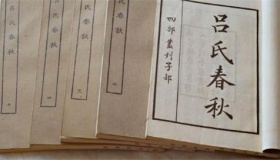 吕氏春秋
四部叢刊子部
吕氏春秋
吕氏春秋
吕氏春秋
吕氏春秋